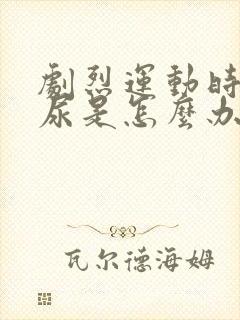 劇烈運動時
尿是怎麼办
瓦尔德海姆